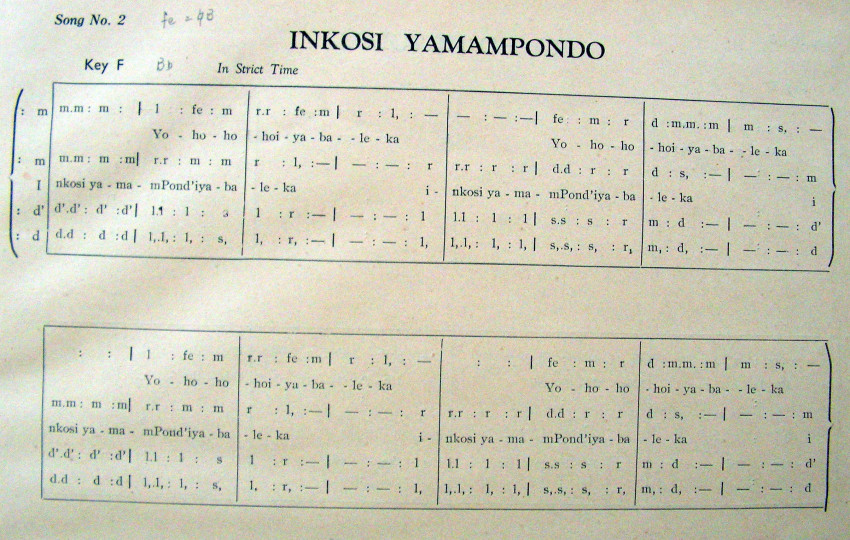 Song No. 2 fe = 4B
INKOSI YAMAMPONDO
Key F Bb In Strict Time
: m m.m : m : | l : fe : m r.r : fe :m | r : l, : — — : — :—| fe : m : r d :m.m. :m | m : s, : —
Yo - ho - ho - hoi - ya - ba - - le - ka Yo - ho - ho - hoi - ya - ba - - le - ka
: m m.m: m :m| r.r : m : m r : l, :—| — : — : r r.r : r : r| d.d : r : r d : s, :—| — : — : m
I nkosi ya - ma - mPond'iya - ba - le - ka i - nkosi ya - ma - mPond'iya - ba - le - ka i
: d' d'.d': d' :d'| l.l : l : s l : r :—| — : — : l l.l : l : l| s.s : s : r m : d :—| — : — : d'
: d d.d : d :d | l,.l, : l, : s, l, : r, :—| — : — : l, l,.l, : l, : l,| s,.s, : s, : r, m, : d, :—| — : — : d
: : | l : fe : m r.r : fe :m | r : l, : — : : | fe : m : r d :m.m. :m | m : s, : —
Yo - ho - ho - hoi - ya - ba - - le - ka Yo - ho - ho - hoi - ya - ba - - le - ka
m.m: m :m| r.r : m : m r : l, :—| — : — : r r.r : r : r| d.d : r : r d : s, :—| — : — : m
nkosi ya - ma - mPond'iya - ba - le - ka i - nkosi ya - ma - mPond'iya - ba - le - ka i
d'.d': d' :d'| l.l : l : s l : r :—| — : — : l l.l : l : l| s.s : s : r m : d :—| — : — : d'
d.d : d :d | l,.l, : l, : s, l, : r, :—| — : — : l, l,.l, : l, : l,| s,.s, : s, : r, m, : d, :—| — : — : d